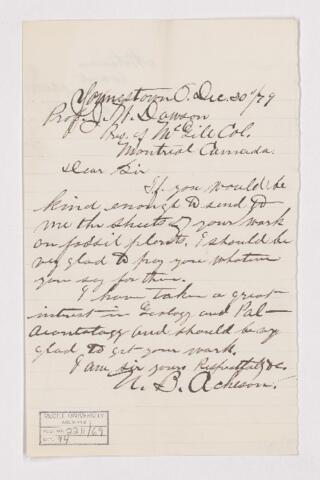 Youngstown O. Dec. 30th/79
Prof. J. W. Dawson
Pres. of McGill Col.
Montreal Canada.
Dear Sir
If you would be
kind enough to send to
me the sheets of your work
on fossil plants. I should be
very glad to pay you whatever
you say for them.
I have taken a great
interest in Geology and Pal-
aeontology and should be very
glad to get your work.
I am Sir yours Respectfully &c.
A. B. Acheson.
McGILL UNIVERSITY
ARCHIVES
2211/69
94